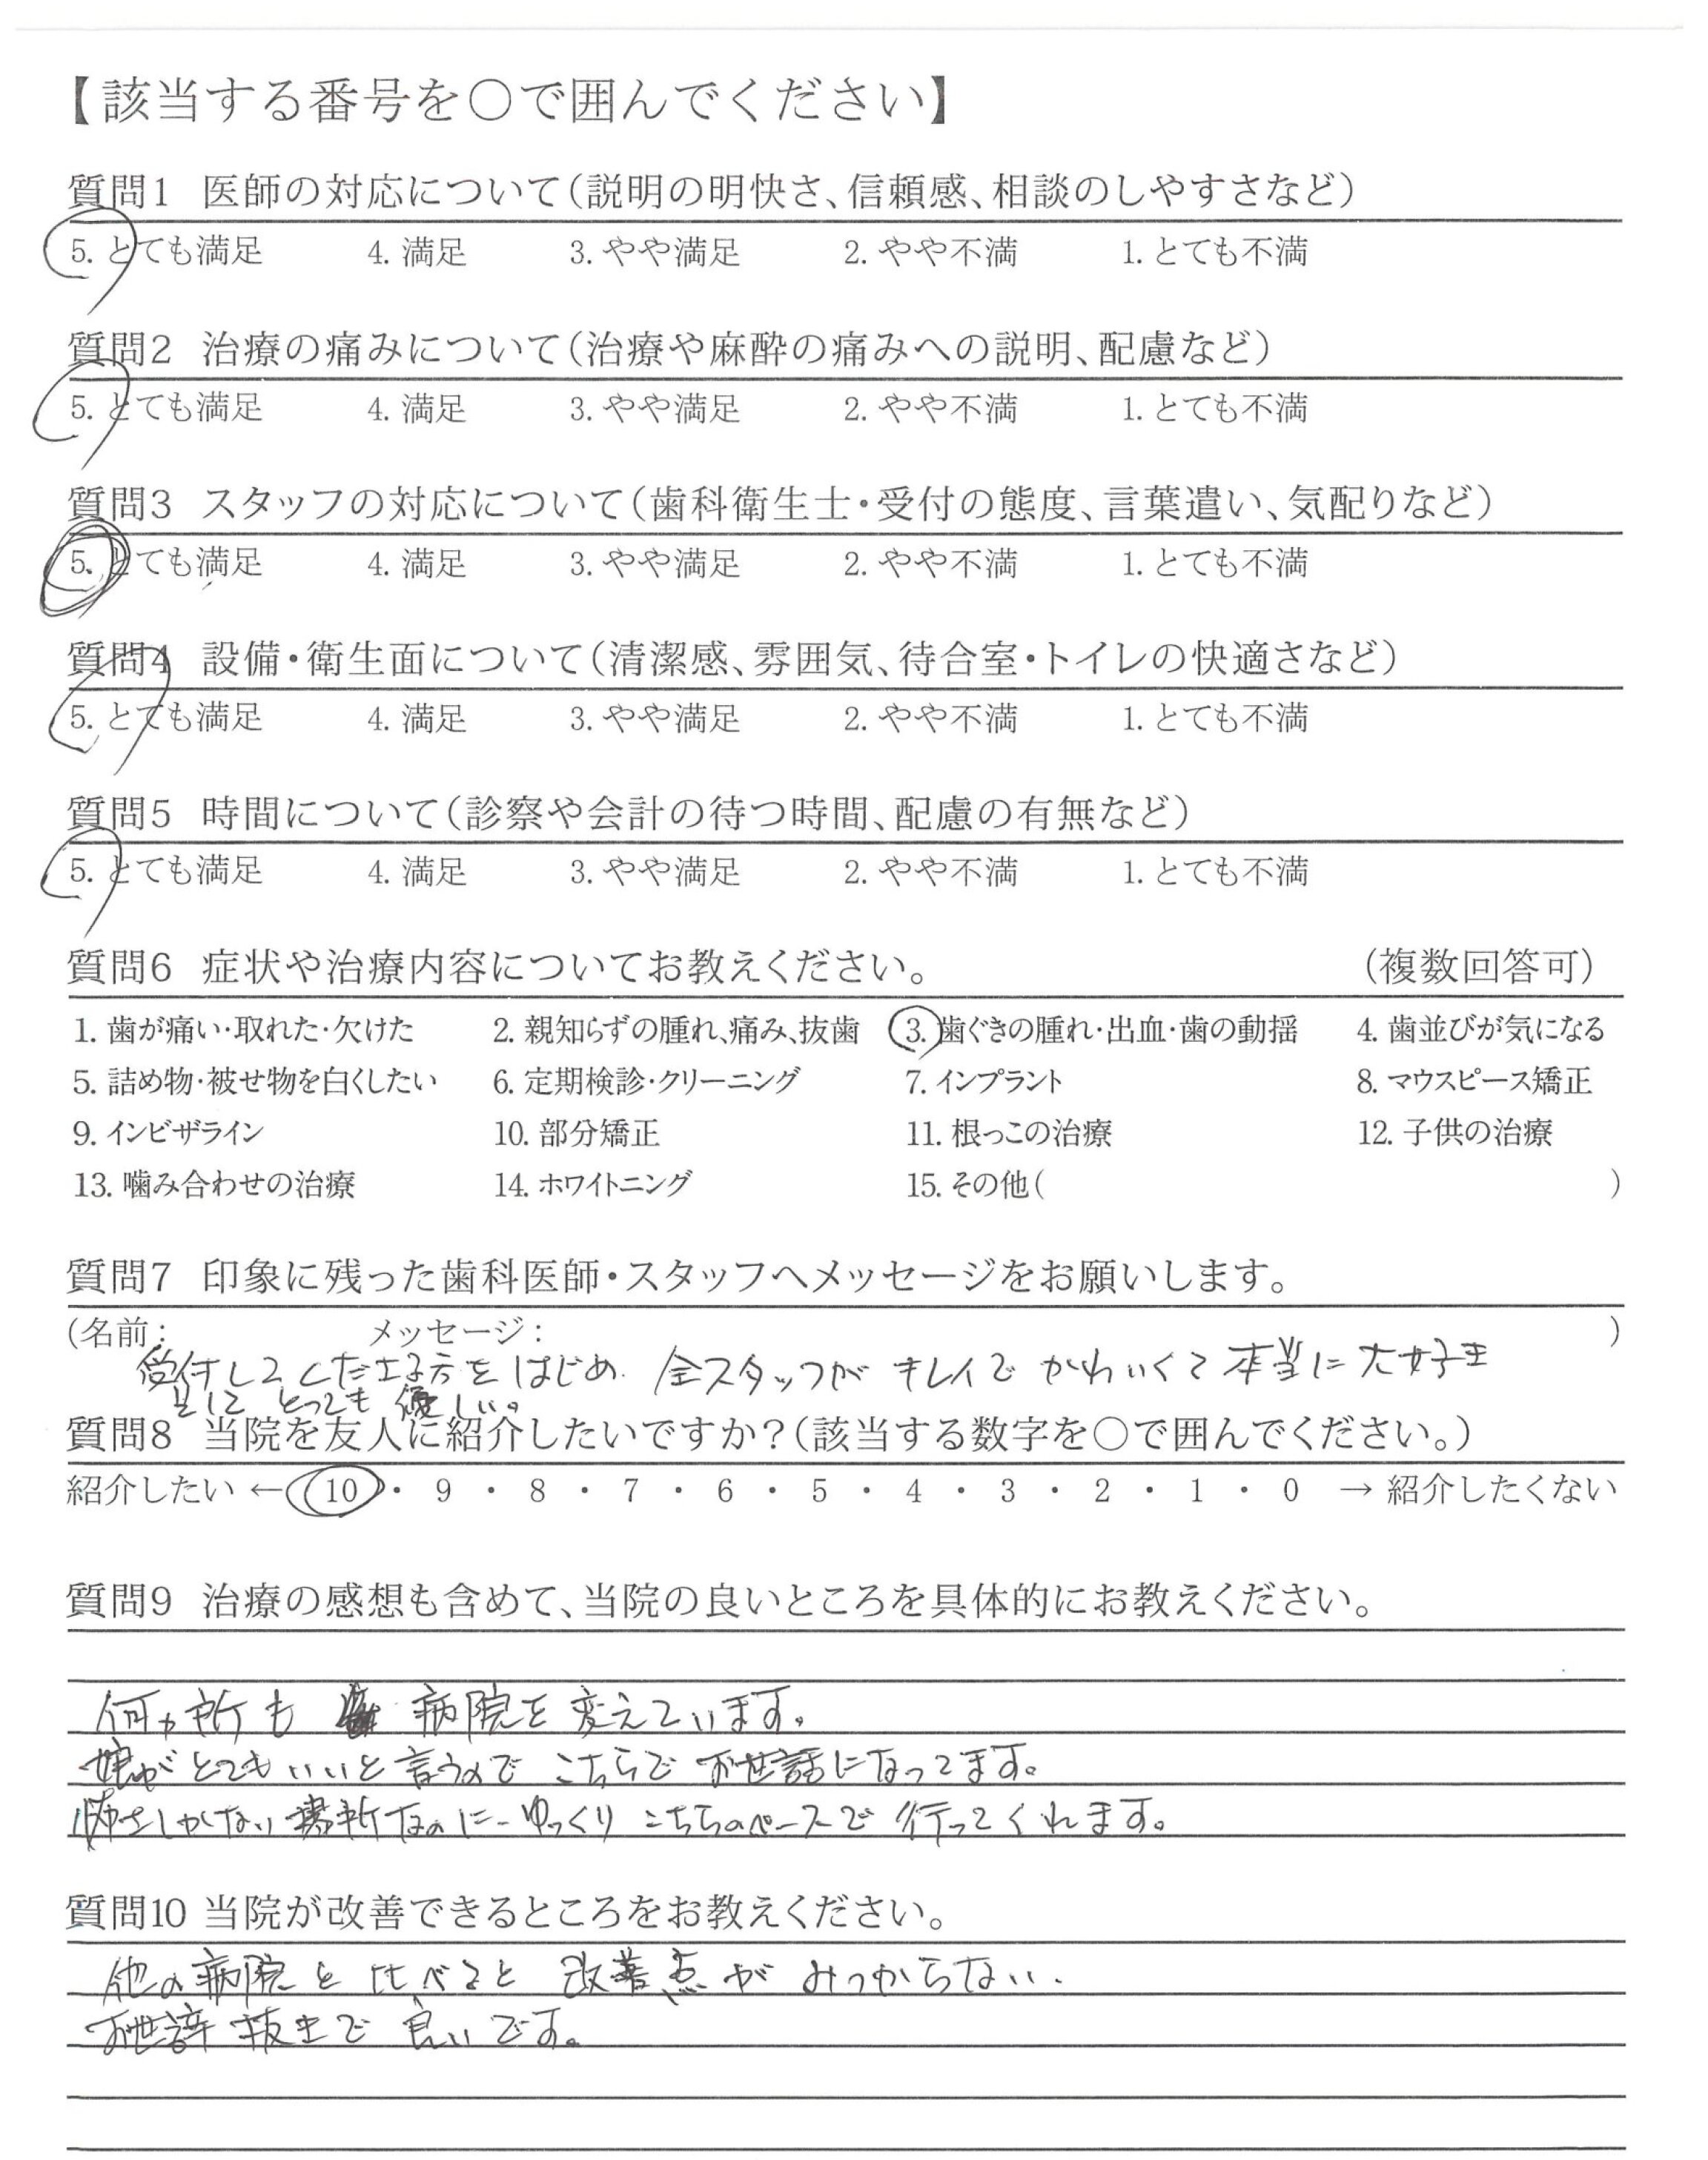 【該当する番号を○で囲んでください】
質問1 医師の対応について(説明の明快さ、信頼感、相談のしやすさなど)
5. とても満足 4. 満足 3. やや満足 2. やや不満 1. とても不満
質問2 治療の痛みについて(治療や麻酔の痛みへの説明、配慮など)
5. とても満足 4. 満足 3. やや満足 2. やや不満 1. とても不満
質問3 スタッフの対応について(歯科衛生士・受付の態度、言葉遣い、気配りなど)
5. とても満足 4. 満足 3. やや満足 2. やや不満 1. とても不満
質問4 設備・衛生面について(清潔感、雰囲気、待合室・トイレの快適さなど)
5. とても満足 4. 満足 3. やや満足 2. やや不満 1. とても不満
質問5 時間について(診察や会計の待つ時間、配慮の有無など)
5. とても満足 4. 満足 3. やや満足 2. やや不満 1. とても不満
質問6 症状や治療内容についてお教えください。 (複数回答可)
1. 歯が痛い・取れた・欠けた 2. 親知らずの腫れ、痛み、抜歯 3. 歯ぐきの腫れ・出血・歯の動揺 4. 歯並びが気になる
5. 詰め物・被せ物を白くしたい 6. 定期検診・クリーニング 7. インプラント 8. マウスピース矯正
9. インビザライン 10. 部分矯正 11. 根っこの治療 12. 子供の治療
13. 噛み合わせの治療 14. ホワイトニング 15. その他( )
質問7 印象に残った歯科医師・スタッフへメッセージをお願いします。
(名前: メッセージ: )
受付して下さる方をはじめ 全スタッフが キレイで かわいくて 本当に大好き
そして とっても 優しい。
質問8 当院を友人に紹介したいですか?(該当する数字を○で囲んでください。)
紹介したい ← 10 ・ 9 ・ 8 ・ 7 ・ 6 ・ 5 ・ 4 ・ 3 ・ 2 ・ 1 ・ 0 → 紹介したくない
質問9 治療の感想も含めて、当院の良いところを具体的にお教えください。
何ヶ所も 病院を変えています。
娘がとてもいいと言うので こちらで お世話になってます。
怖さしかない場所なのに ゆっくり こちらのペースで 行ってくれます。
質問10 当院が改善できるところをお教えください。
他の病院と比べると 改善点が みつからない.
お世辞抜きで 良いです。